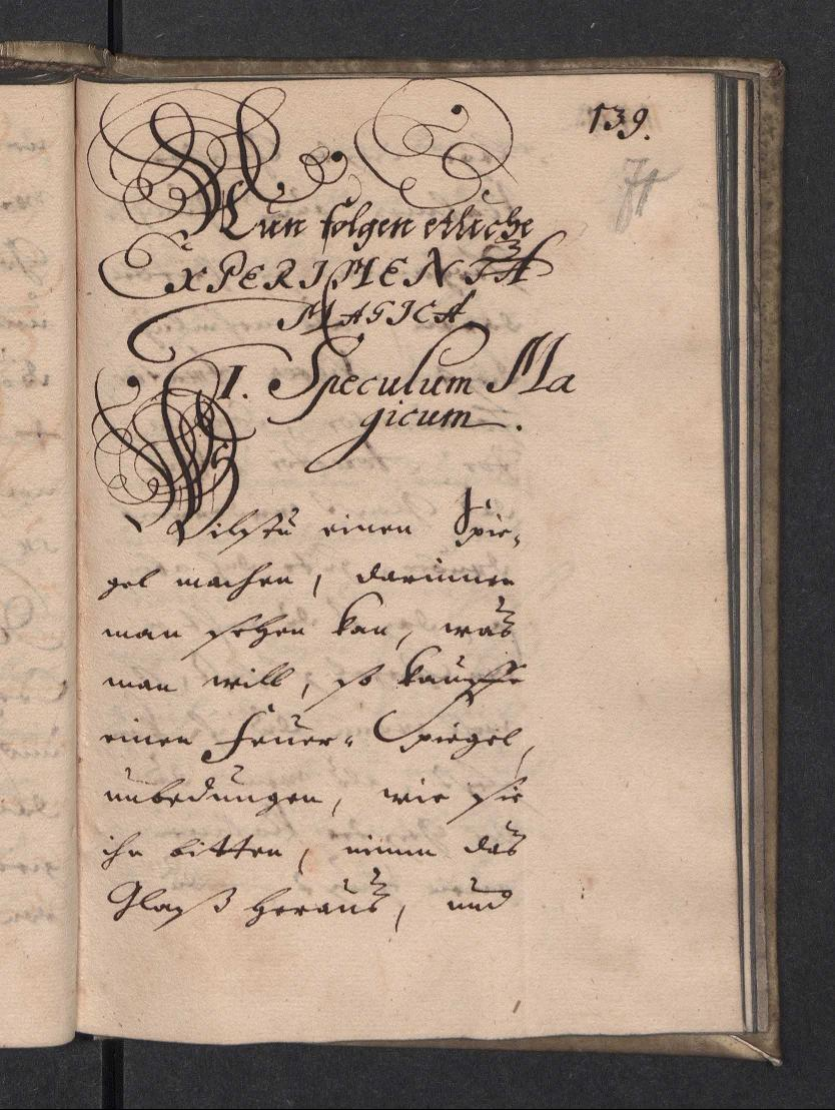 139.
Nun folgen etliche
EXPERIMENTA
MAGICA
I. Speculum Ma
gicum.
Wilstu einen Spie=
gel machen, darinnen
man sehen kan, was
man will, so kauffe
einen Feuer= Spiegel,
unbedungen, wie sie
ihn bitten, nimm das
Glaß heraus, und